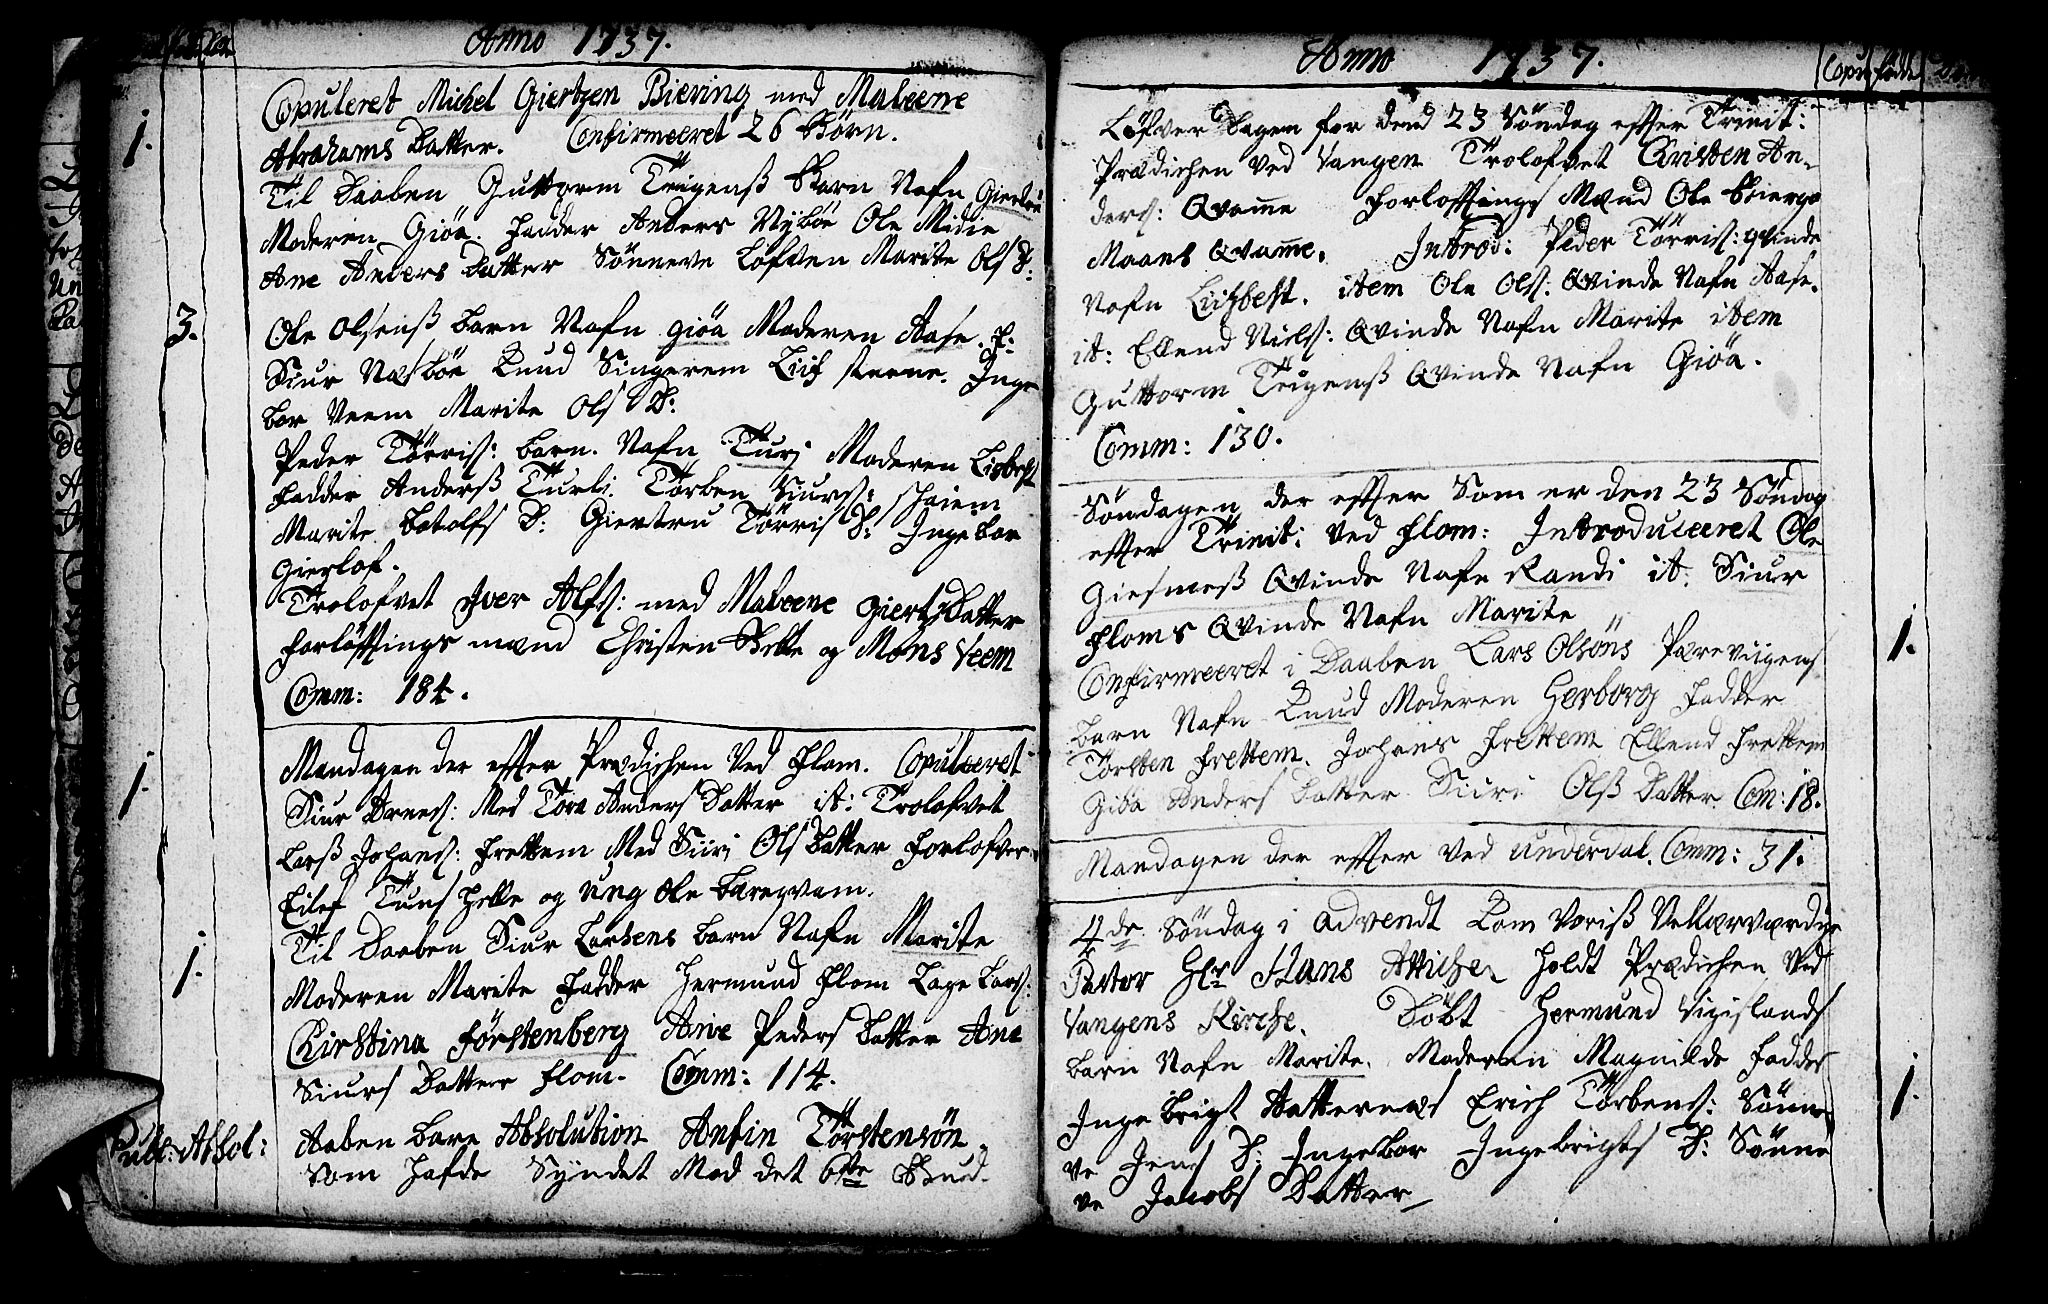 Anno 1737.
Copuleret Michel Giertzen Biering med Maleene
1.
Abrahams Datter. Confirmeeret 26 Børn.
Til Daaben Guttorm Teigenß Barn Nafn Giertru
Moderen Giöa. Fadder Anders Nyböe Ole Midie
Ane Anders Datter Sönneve Löfven Marite Ols D:
3.
Ole Olsenß Barn Nafn giöa Moderen Aase. F:
Siur Næsböe Knud Singerem Liif steene. Inge
bor Veem Marite Ols D:
Peder Törris: barn. Nafn Turj Moderen Lisbeht
Fadder Anderß Turli. Törben Siurs: sheiem
Marite Botolfs D: Giertru Törris D: Ingebor
Gierlof.
Trolofvet Iver Alfs: med Maleene GiertzDatter
Forlöftings mænd Christen Helle og Mons Veem
Comm: 184.
Mandagen der efter Prædichen Ved Flom. Copuleeret
1.
Siur Arnes: Med Tora Anders Datter it: Trolofvet
Larß Johans: Frettem Med Siirj Ols Datter Forlofver
Eilef Tuns Helle og ung Ole Bareqvam.
Til Daaben Siur Larsens Barn Nafn Marite
1.
Moderen Marite Fadder Hermund Flom Lage Lars:
Chirstina Förstenberg Ane Peders Datter Ane
Siurs Datter Flom. Comm: 114.
Publ: Absol:
Aaben bare Absolution Anfin Törstensön
Som Hafde Syndet Mod det 6te Bud.
Anno 1737.
Copul Födde
Löfver Dagen for dend 23 Söndag efter Trinit:
Prædichen Ved Vangen Trolofvet Christen An-
ders: Qvamme Forloftings Mænd Ole Bierge
Maans Qvamme. Introd: Peder Törris: qvinde
Nafn Liisbeht. item Ole Ols: Qvinde Nafn Aase.
it: Ellend Niels: Qvinde Nafn Marite item
Guttorm Teigenß Qvinde Nafn Giöa.
Comm: 130.
Söndagen der efter Som er den 23 Söndag
efter Trinit: Ved Flom: Introduceeret Ole
Giesmeß Qvinde Nafn Randi it: Siur
Floms Qvinde Nafn Marite
1.
Confirmeeret i Daaben Lars Olsöns
Barn Nafn Knud Moderen Herborg Fadder
Törsten Frettem. Johans Frettem Ellend Frettem
Giöa Anders Datter Siiri Olß Datter Com: 18.
Mandagen der efter Ved underdal. Comm: 31.
4de Söndag i Advendt Kom Voriß Velærværdige
Pastor Hr Hans Holdt Prædichen Ved
Vangens Kirche. Döbt Hermund Vigislands
Barn Nafn Marite. Moderen Magnilde Fadder
1.
Ingebrigt Aatternæs Erich Törbens: Sönne
ve Jens D: Ingebor Ingebrigts D: Sönne
ve Jacobs Datter